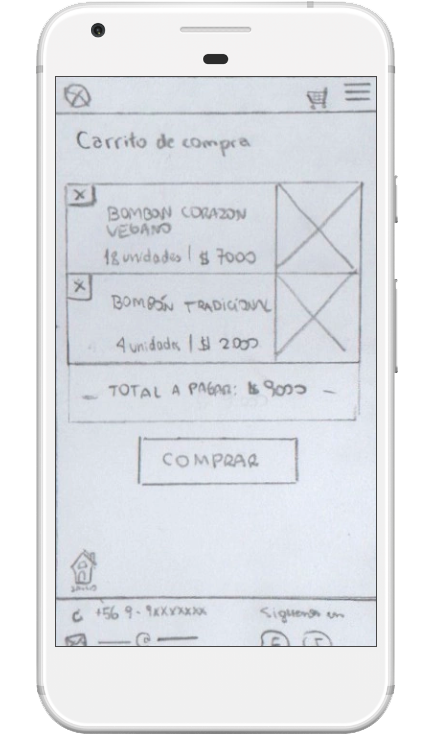 Carrito de compra
X
BOMBON CORAZON
VEGANO
18 unidades | $ 7000
X
BOMBÓN TRADICIONAL
4 unidades | $ 2000
- TOTAL A PAGAR: $ 9000 -
COMPRAR
+56 9 - 9XXXXXXX
Siguenos en
@